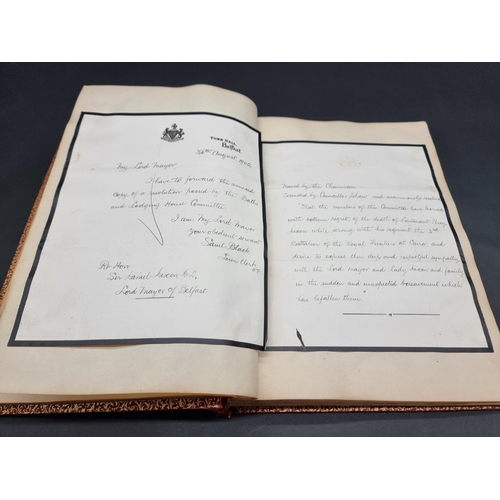 TOWN HALL,
Belfast.
August 190
My Lord Mayor
I have to forward the annexed
copy of a resolution passed by the Baths
and Lodging House Committee
I am My Lord Mayor
your obedient servant
Saml Black
Town Clerk
Rt Hon
Sir Daniel Dixon
Lord Mayor of Belfast.
Moved by the Chairman
Seconded by Councillor Shaw and unanimously
That the members of the Committee have heard
with extreme regret of the death of Lieutenant
Dixon while serving with his regiment the 2nd
Battalion of the Royal Fusiliers at Cairo and
desire to express their deep and respectful sympathy
with the Lord Mayor and Lady Dixon and family
in the sudden and unexpected bereavement which
has befallen them.